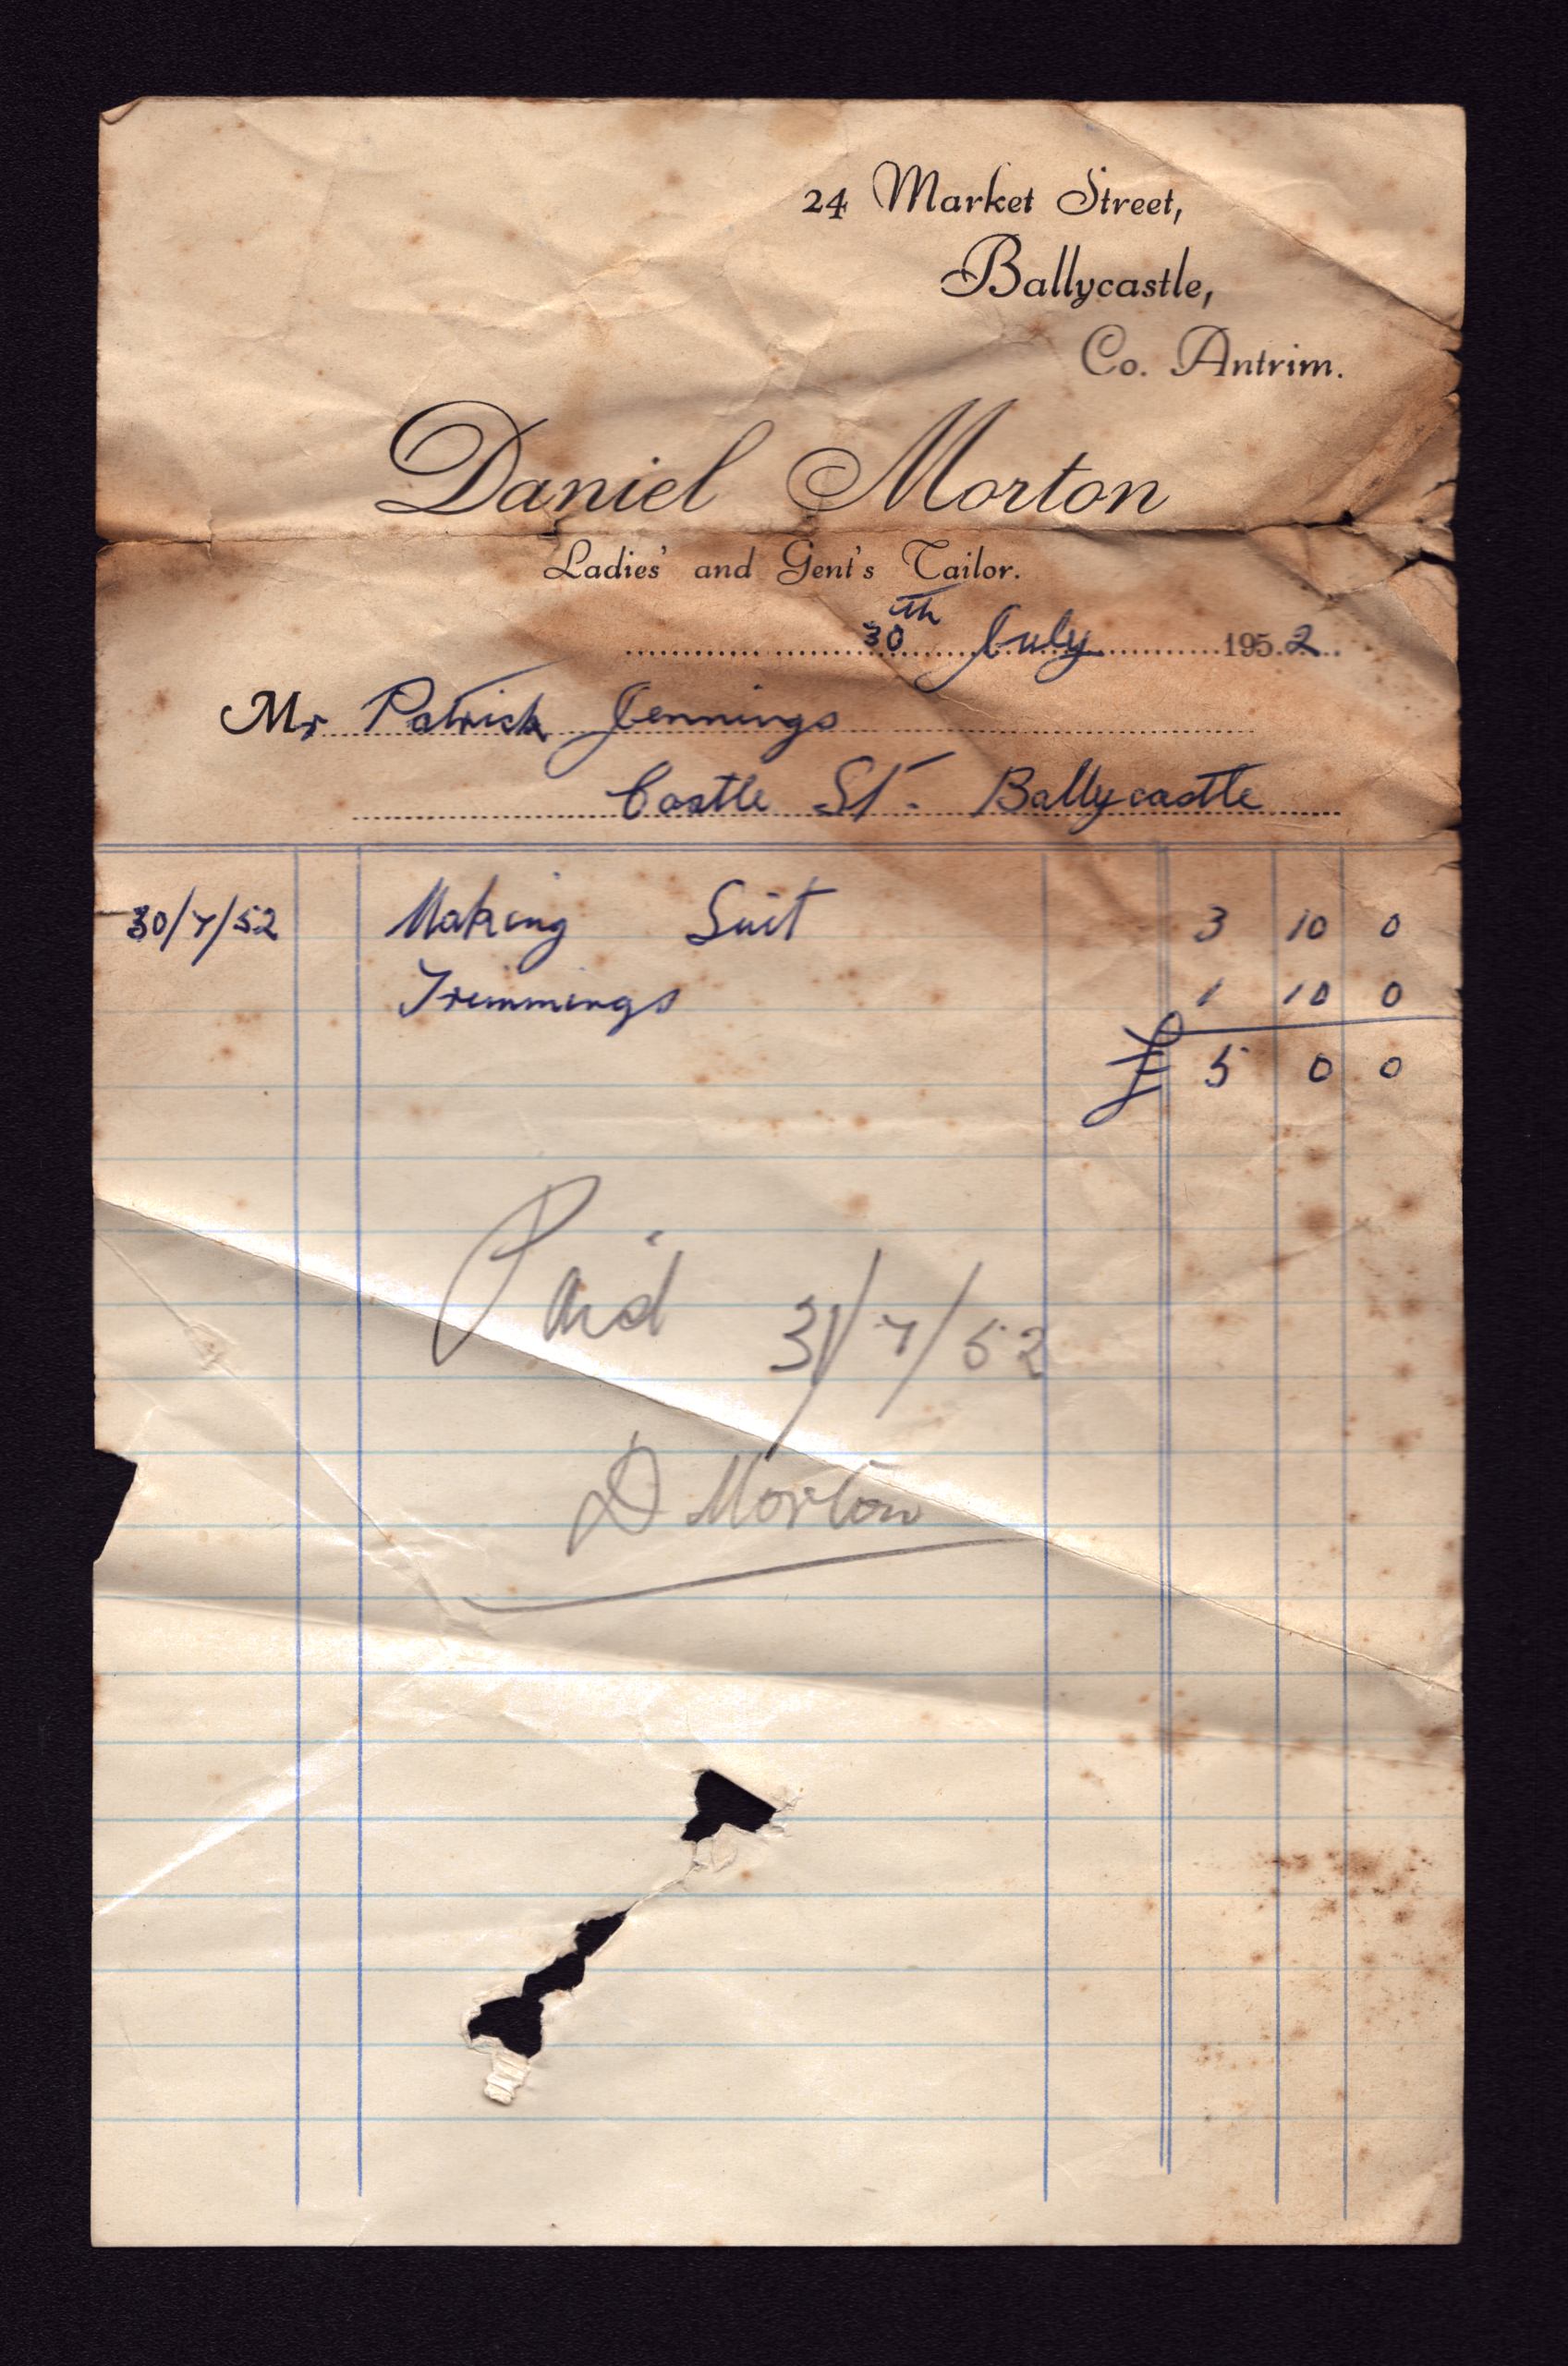 24 Market Street,
Ballycastle,
Co. Antrim.
Daniel Morton
Ladies' and Gent's Tailor.
30th July 1952
Mr Patrick Jennings
Castle St. Ballycastle
30/7/52 Making Suit 3 10 0
Trimmings 1 10 0
£ 5 0 0
Paid 31/7/52
D Morton